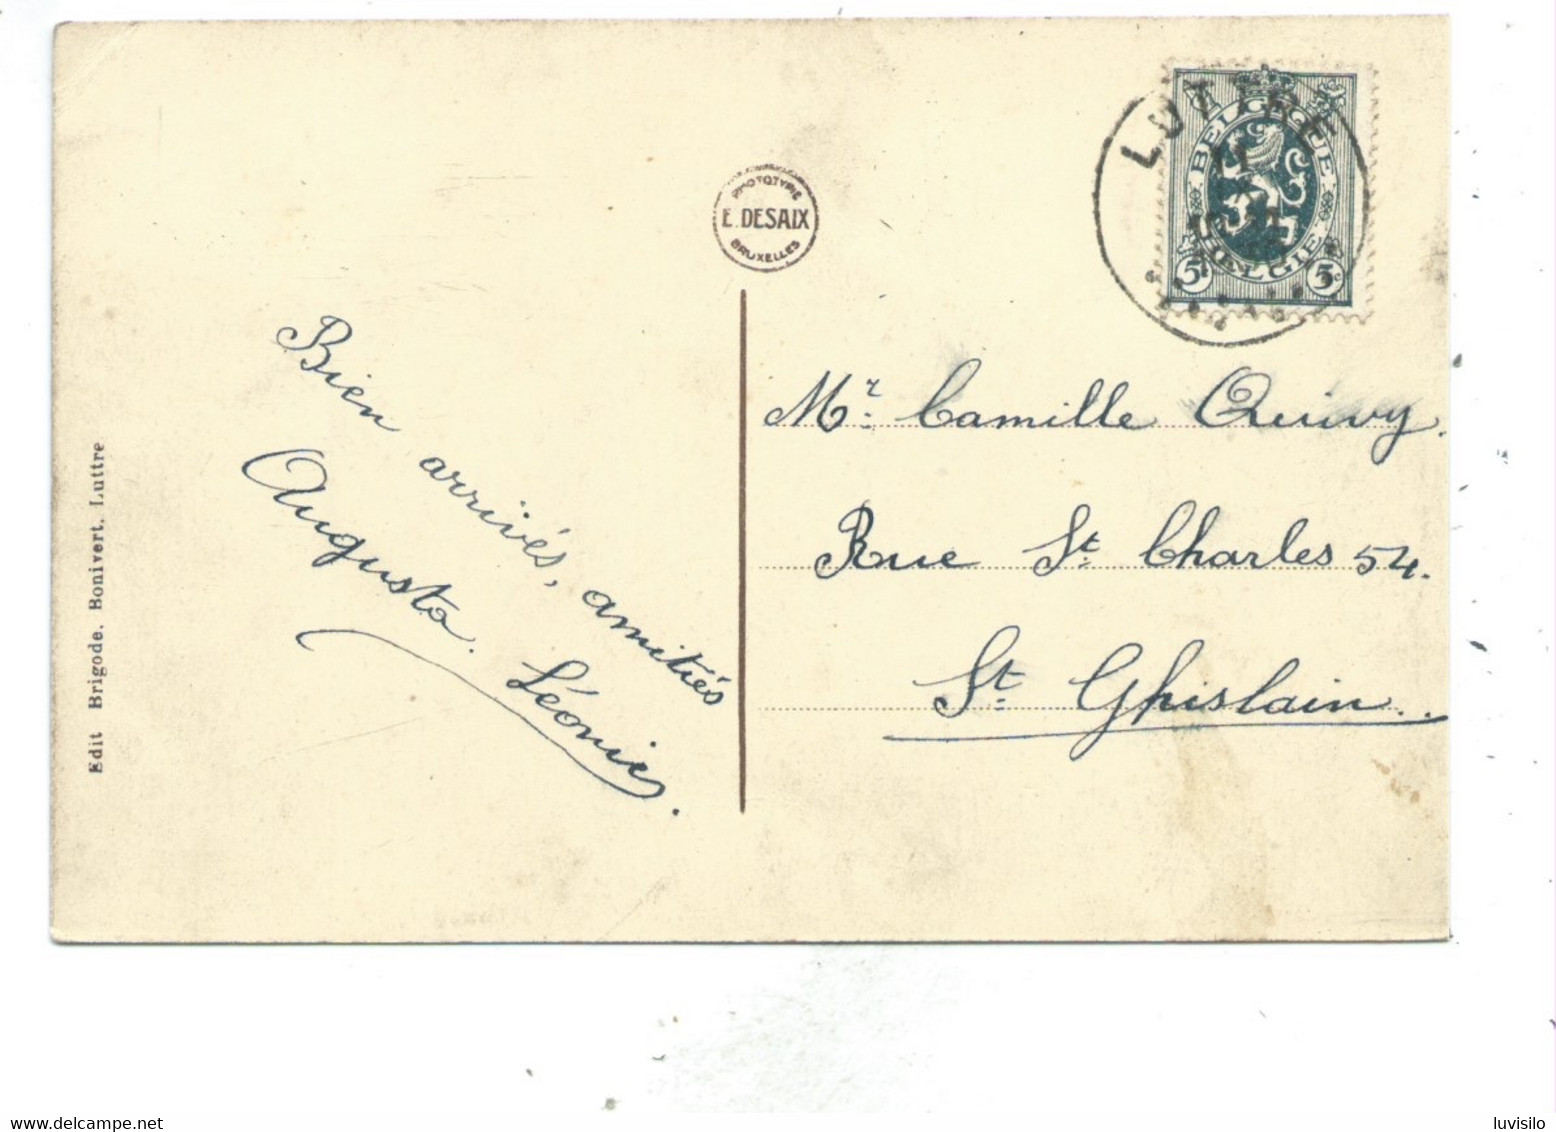 PHOTOTYPIE
E. DESAIX
BRUXELLES
BELGIQUE
BELGIE
5c 5c
Bien arrivés, amitiés
Augusta. Léonie.
Mr. Camille Quivy.
Rue St. Charles 54.
St. Ghislain.
Edit Brigode. Bonivert. Luttre
delcampe.net
luvisilo